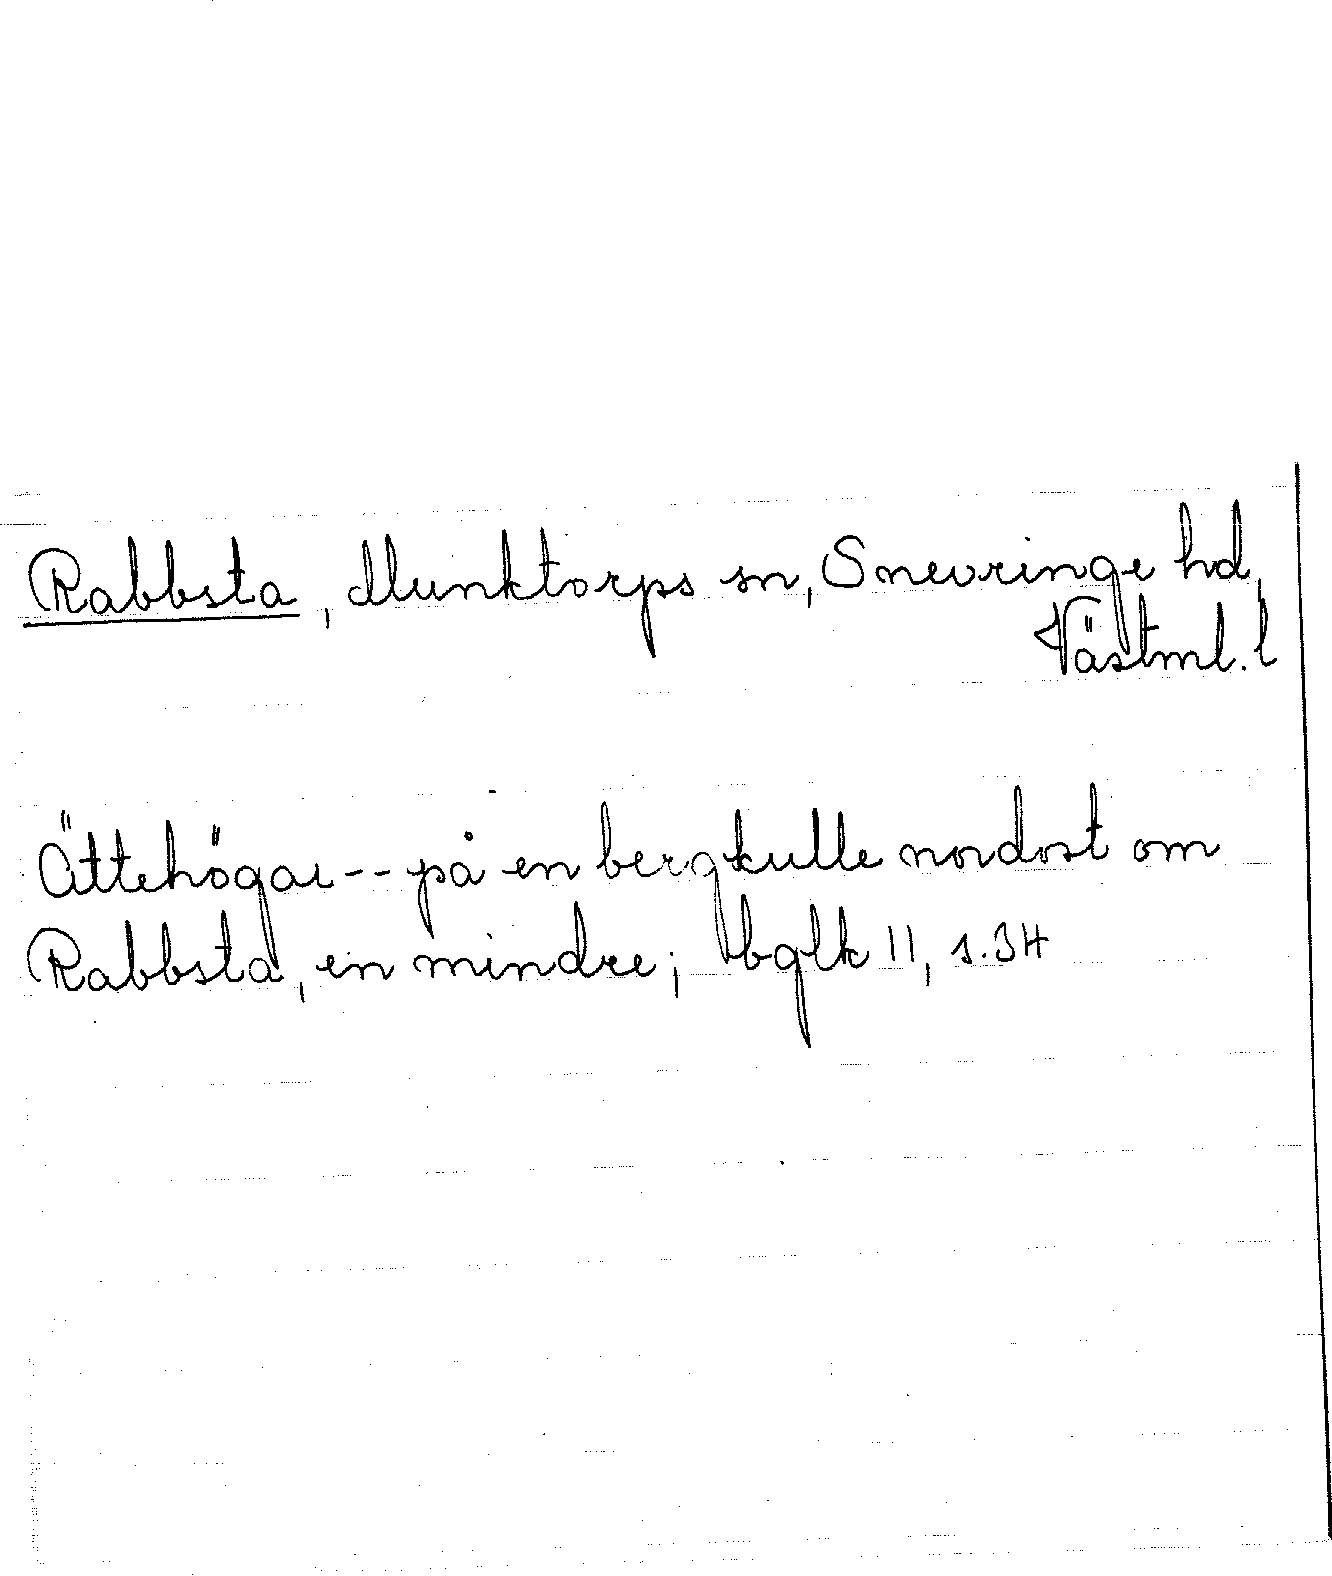 Rabbsta, Munktorps sn, Snevringe hd,
Västml. l
Ättehögar -- på en bergkulle nordost om
Rabbsta, en mindre; bglk II, s. 34